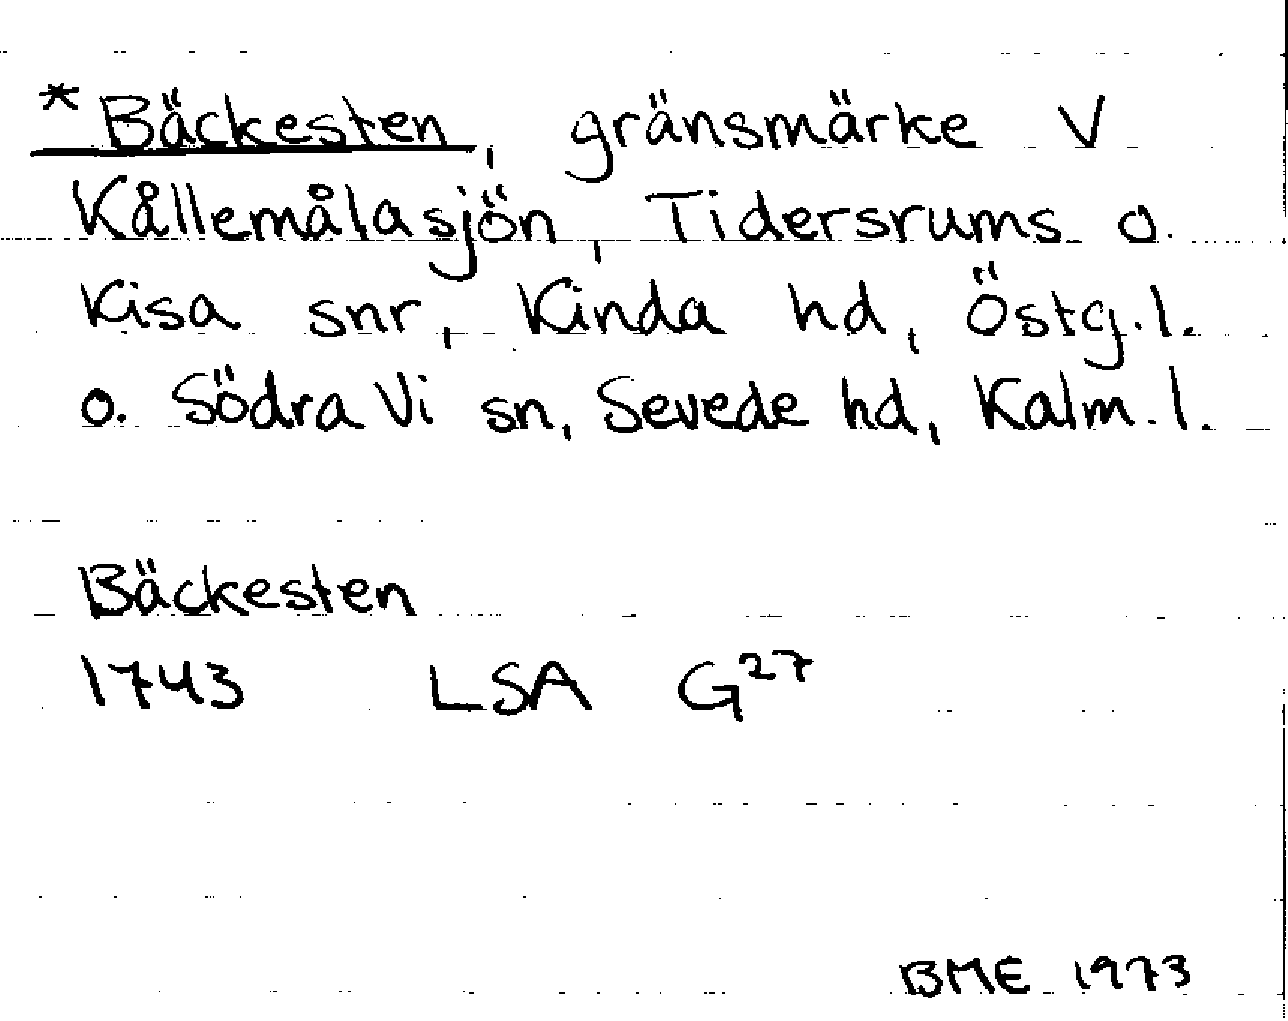 *Bäckesten, gränsmärke V
Kållemålasjön, Tidersrums o.
Kisa snr, Kinda hd, Östg.l.
o. Södra Vi sn, Sevede hd, Kalm.l.
Bäckesten
1743 LSA G²⁷
BME 1973